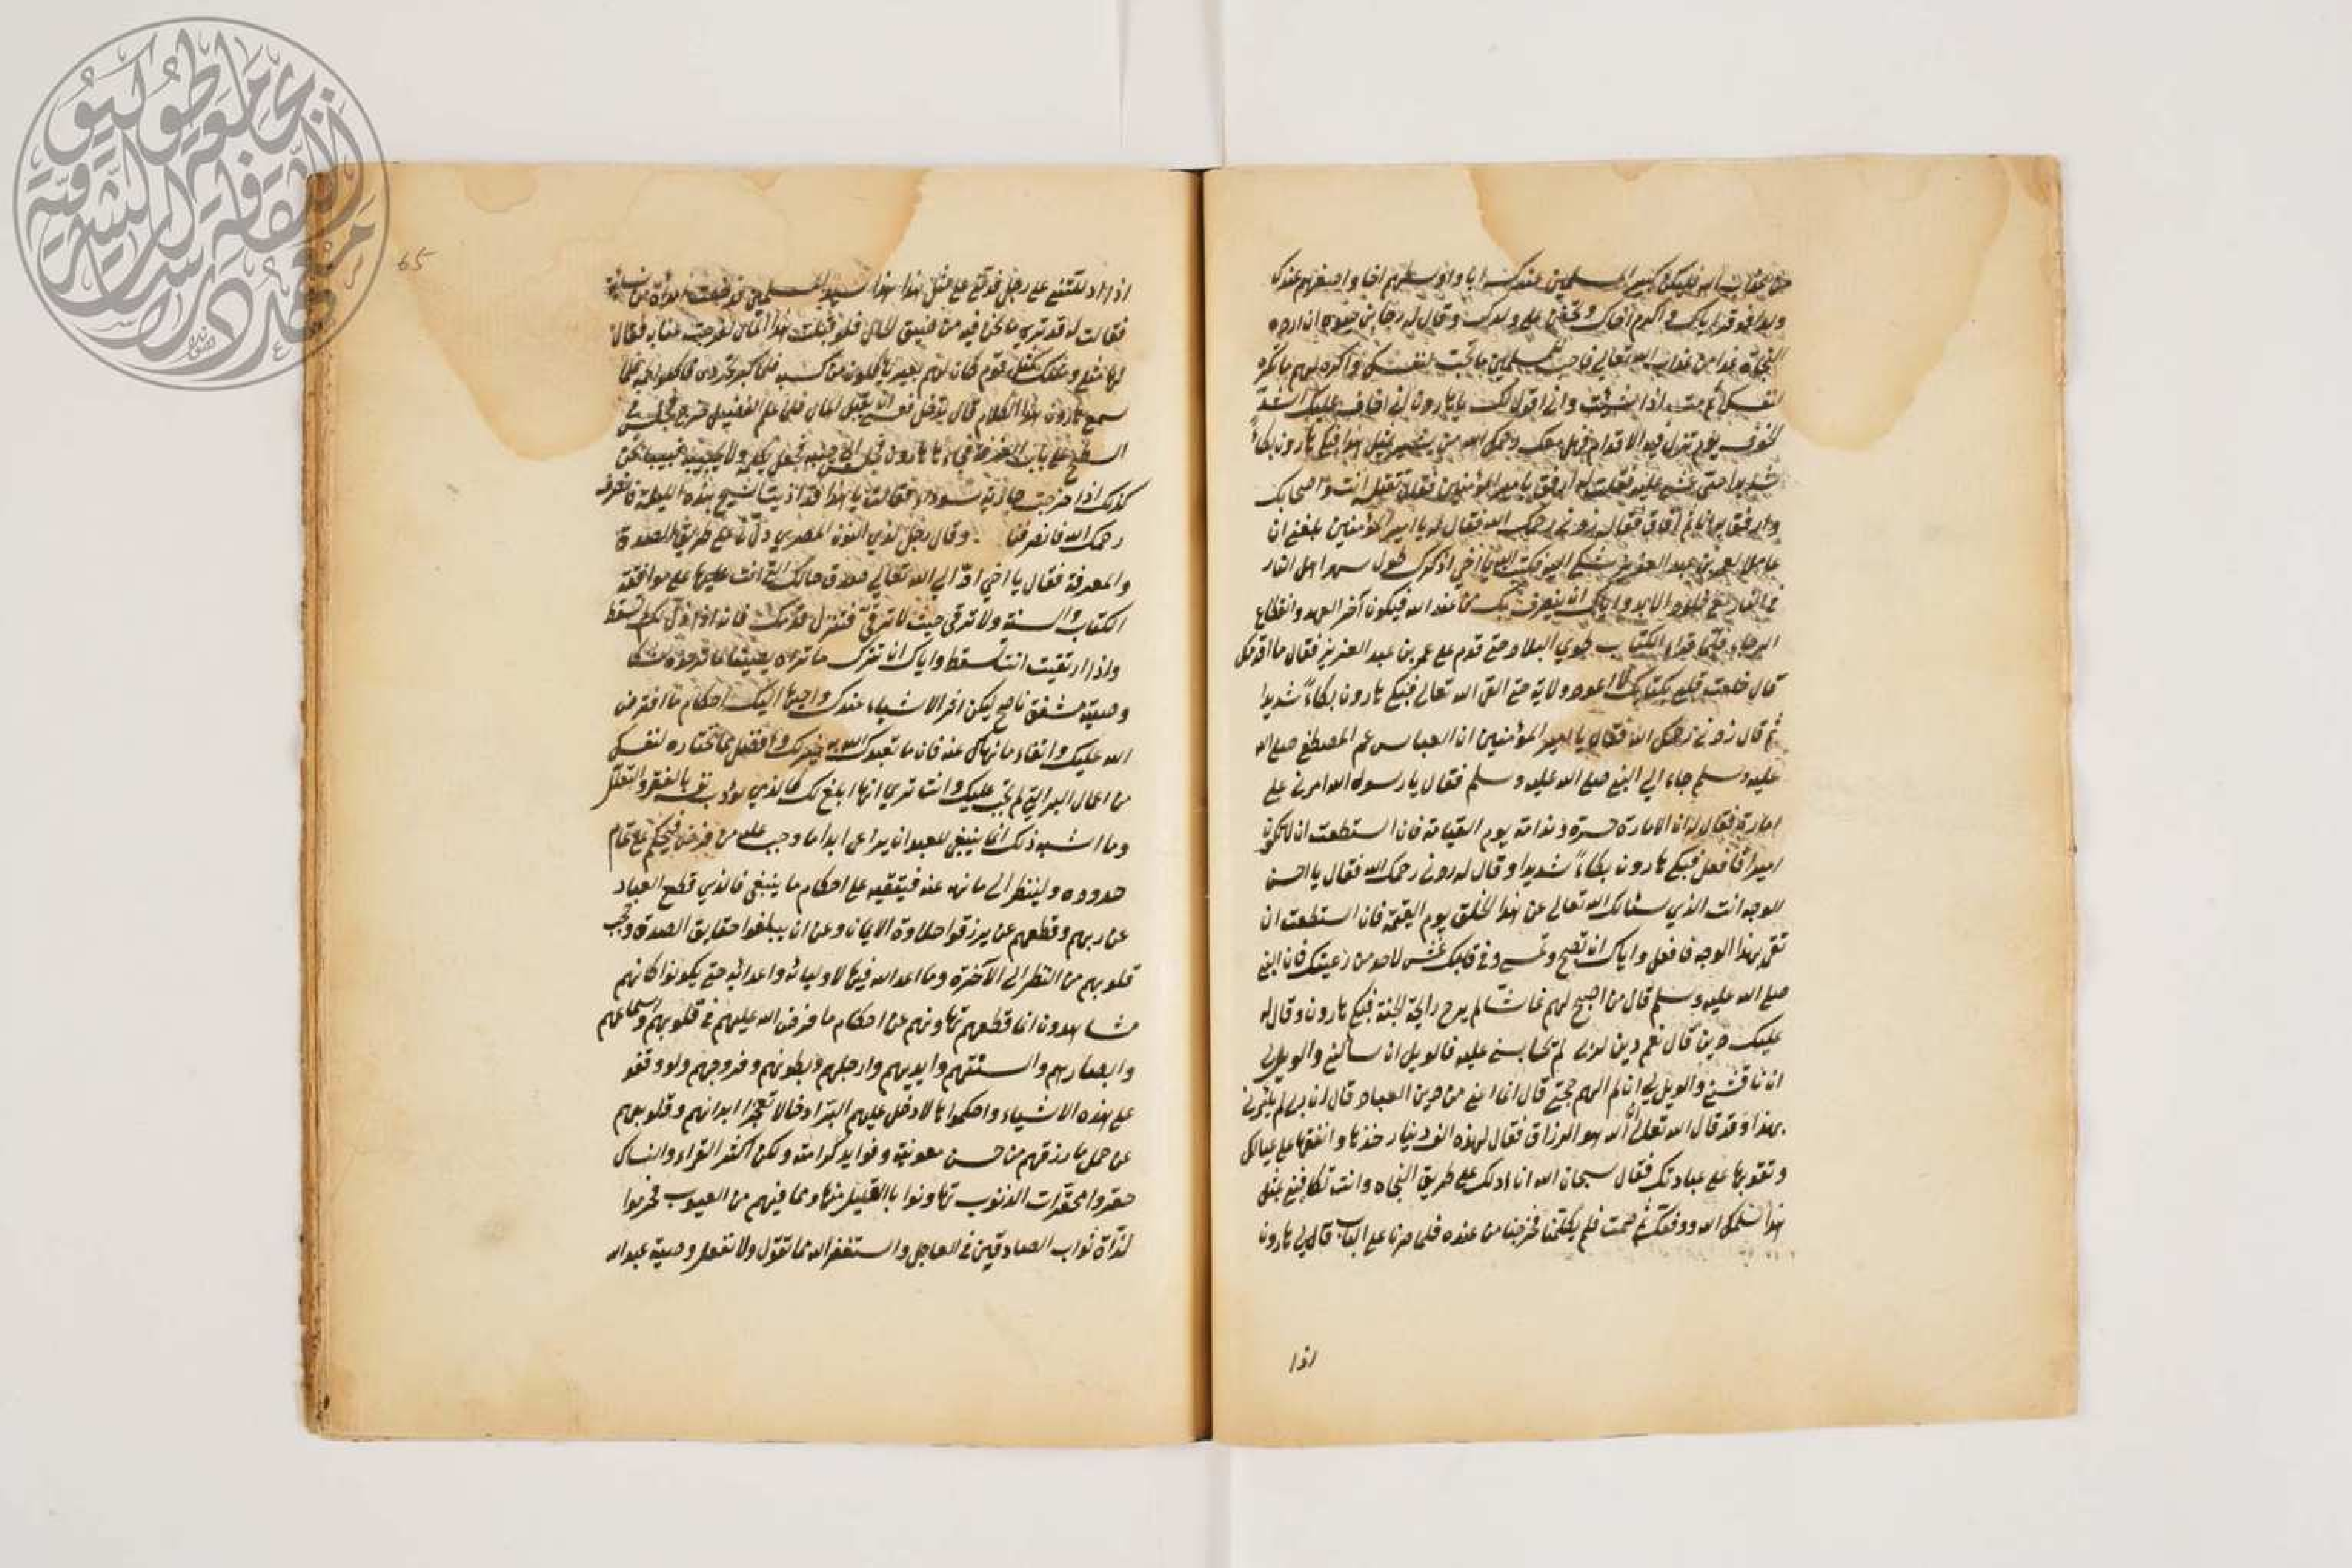 من عذاب الله فليكن كبير المسلمين عندك ابا واوسطهم اخا واصغرهم عندك
ولدا فوقر اباك واكرم اخاك وتحنن على ولدك وقال له رجا بن حيوة ان اردت
النجاة غدا من عذاب الله تعالى فاحب للمسلمين ما تحب لنفسك واكره لهم ما تكره
لنفسك ثم مت اذا شئت واني اقول لك يا هارون اني اخاف عليك اشد
الخوف يوم تزل فيه الاقدام فهل معك رحمك الله من يشير بمثل هذا فبكى هارون بكاءً
شديدا حتى غشي عليه فقلت له ارفق يا امير المؤمنين فقال تقتله انت واصحابك
وارفق به انا ثم افاق فقال زدني رحمك الله فقال له يا امير المؤمنين بلغني ان
عاملا لعمر بن عبد العزيز شكى اليه فكتب اليه يا اخي اذكرك طول سهر اهل النار
في النار مع خلود الابد واياك ان ينصرف بك من عند الله فيكون آخر العهد وانقطاع
الرجاء فلما قرا الكتاب طوى البلاد حتى قدم على عمر بن عبد العزيز فقال ما اقدمك
قال خلعت قلبي بكتابك لا اعود ولاية حتى القى الله تعالى فبكى هارون بكاءً شديدا
ثم قال زدني رحمك الله فقال يا امير المؤمنين ان العباس عم المصطفى صلى الله
عليه وسلم جاء الى النبي صلى الله عليه وسلم فقال يا رسول الله امرني على
امارة فقال له ان الامارة حسرة وندامة يوم القيامة فان استطعت ان لا تكون
اميرا فافعل فبكى هارون بكاءً شديدا وقال له زدني رحمك الله فقال يا احسن
الوجه انت الذي يسئالك الله تعالى عن هذا الخلق يوم القيمة فان استطعت ان
تقى بهذا الوجه فافعل واياك ان تصبح وتمسي وفي قلبك غش لاحد من رعيتك فان النبي
صلى الله عليه وسلم قال من اصبح لهم غاشا لم يرح رايحة الجنة فبكى هارون وقال له
عليك دين قال نعم دين لربي لم يحاسبني عليه فالويل ان سألني والويل لي
ان ناقشني والويل لي ان لم الهم حجتي قال انما اعني من دين العباد قال ان ربي لم يامرني
بهذا وقد قال الله تعالى ان الله هو الرزاق فقال له هذه الف دينار خذها وانفقها على عيالك
وتقو بها على عبادتك فقال سبحان الله انا ادلك على طريق النجاه وانت تكافيني بمثل
هذا سلمك الله ووفقك ثم صمت فلم يكلمنا فخرجنا من عنده فلما صرنا على الباب قال لي هارون
اذا
65
اذا دللتني على رجل فدلني على مثل هذا هذا سيد المسلمين فدخلت امرأة من نسائه
فقالت له قد ترى ما نحن فيه من ضيق الحال فلو قبلت هذا المال لفرجت عنا به فقال
لها مثلي ومثلك كمثل قوم كان لهم بعير ياكلون من كسبه فلما كبر نحروه فاكلوا لحمه فلما
سمع هارون هذا الكلام قال ندخل فعسى ان يقبل المال فلما علم الفضيل خرج فجلس في
السطح على باب الغرفة فجاء هارون فجلس الى جنبه فجعل يكلمه ولا يجيبه فبينما نحن
كذلك اذا خرجت جارية سوداء فقالت يا هذا قد اذيت الشيخ هذه الليلة فانصرف
رحمك الله فانصرفنا . وقال رجل لذي النون المصري دلني على طريق الصدق
والمعرفة فقال يا اخي ادّ الى الله تعالى صدق حالك التي انت عليها على موافقة
الكتاب والسنة ولا ترقى حيث لا ترقى فتزل قدمك فانه اذا زل بك لم تسقط
واذا ارتقيت انت تسقط واياك ان تترك ما تراه يقينا لما ترجوه شكا
وصية مشفق ناصح ليكن اثر الاشياء عندك واحبها اليك احكام ما افترض
الله عليك واتقاء ما نهاك عنه فان ما تعبدك الله به خير لك وافضل مما تختاره لنفسك
من اعمال البر التي لم تجب عليك وانت ترى انها ابلغ لك كالذي يؤدب نفسه بالفقر والتقلل
وما اشبه ذلك انما ينبغي للعبد ان يراعي ابدا ما وجب عليه من فرض فيحكمه على تمام
حدوده ولينظر الى ما نهي عنه فيتقيه على احكام ما ينبغي فالذي قطع العباد
عن ربهم وقطعهم عن يرزقوا حلاوة الايمان وعن ان يبلغوا حقايق الصدق وحجب
قلوبهم من النظر الى الآخرة وما اعد الله فيها لاوليائه واعدائه حتى يكونوا كانهم
مشاهدون انما قطعهم تهاونهم عن احكام ما فرض الله عليهم في قلوبهم واسماعهم
وابصارهم والسنتهم وايديهم وارجلهم وبطونهم وفروجهم ولو وقفو
على هذه الاشياء واحكموها لادخل عليهم البر ادخالا تعجز ابدانهم وقلوبهم
عن حمل ما رزقهم من حسن معونته وفوايد كرامته ولكن اكثر القراء والنساك
حقروا محقرات الذنوب تهاونوا بالقليل منها وما فيهم من العيوب فحرموا
لذاة ثواب الصادقين في العاجل واستغفر الله مما تقول ولا تفعل وصية عبد الله